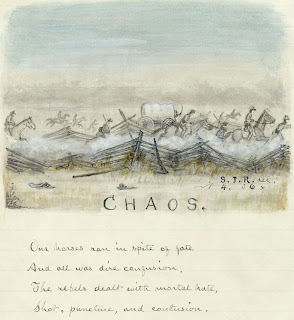 S.J.R. del.
CHAOS.
Our horses ran in spite of fate
And all was dire confusion,
The rebels dealt with mortal hate,
Shot, puncture, and contusion.